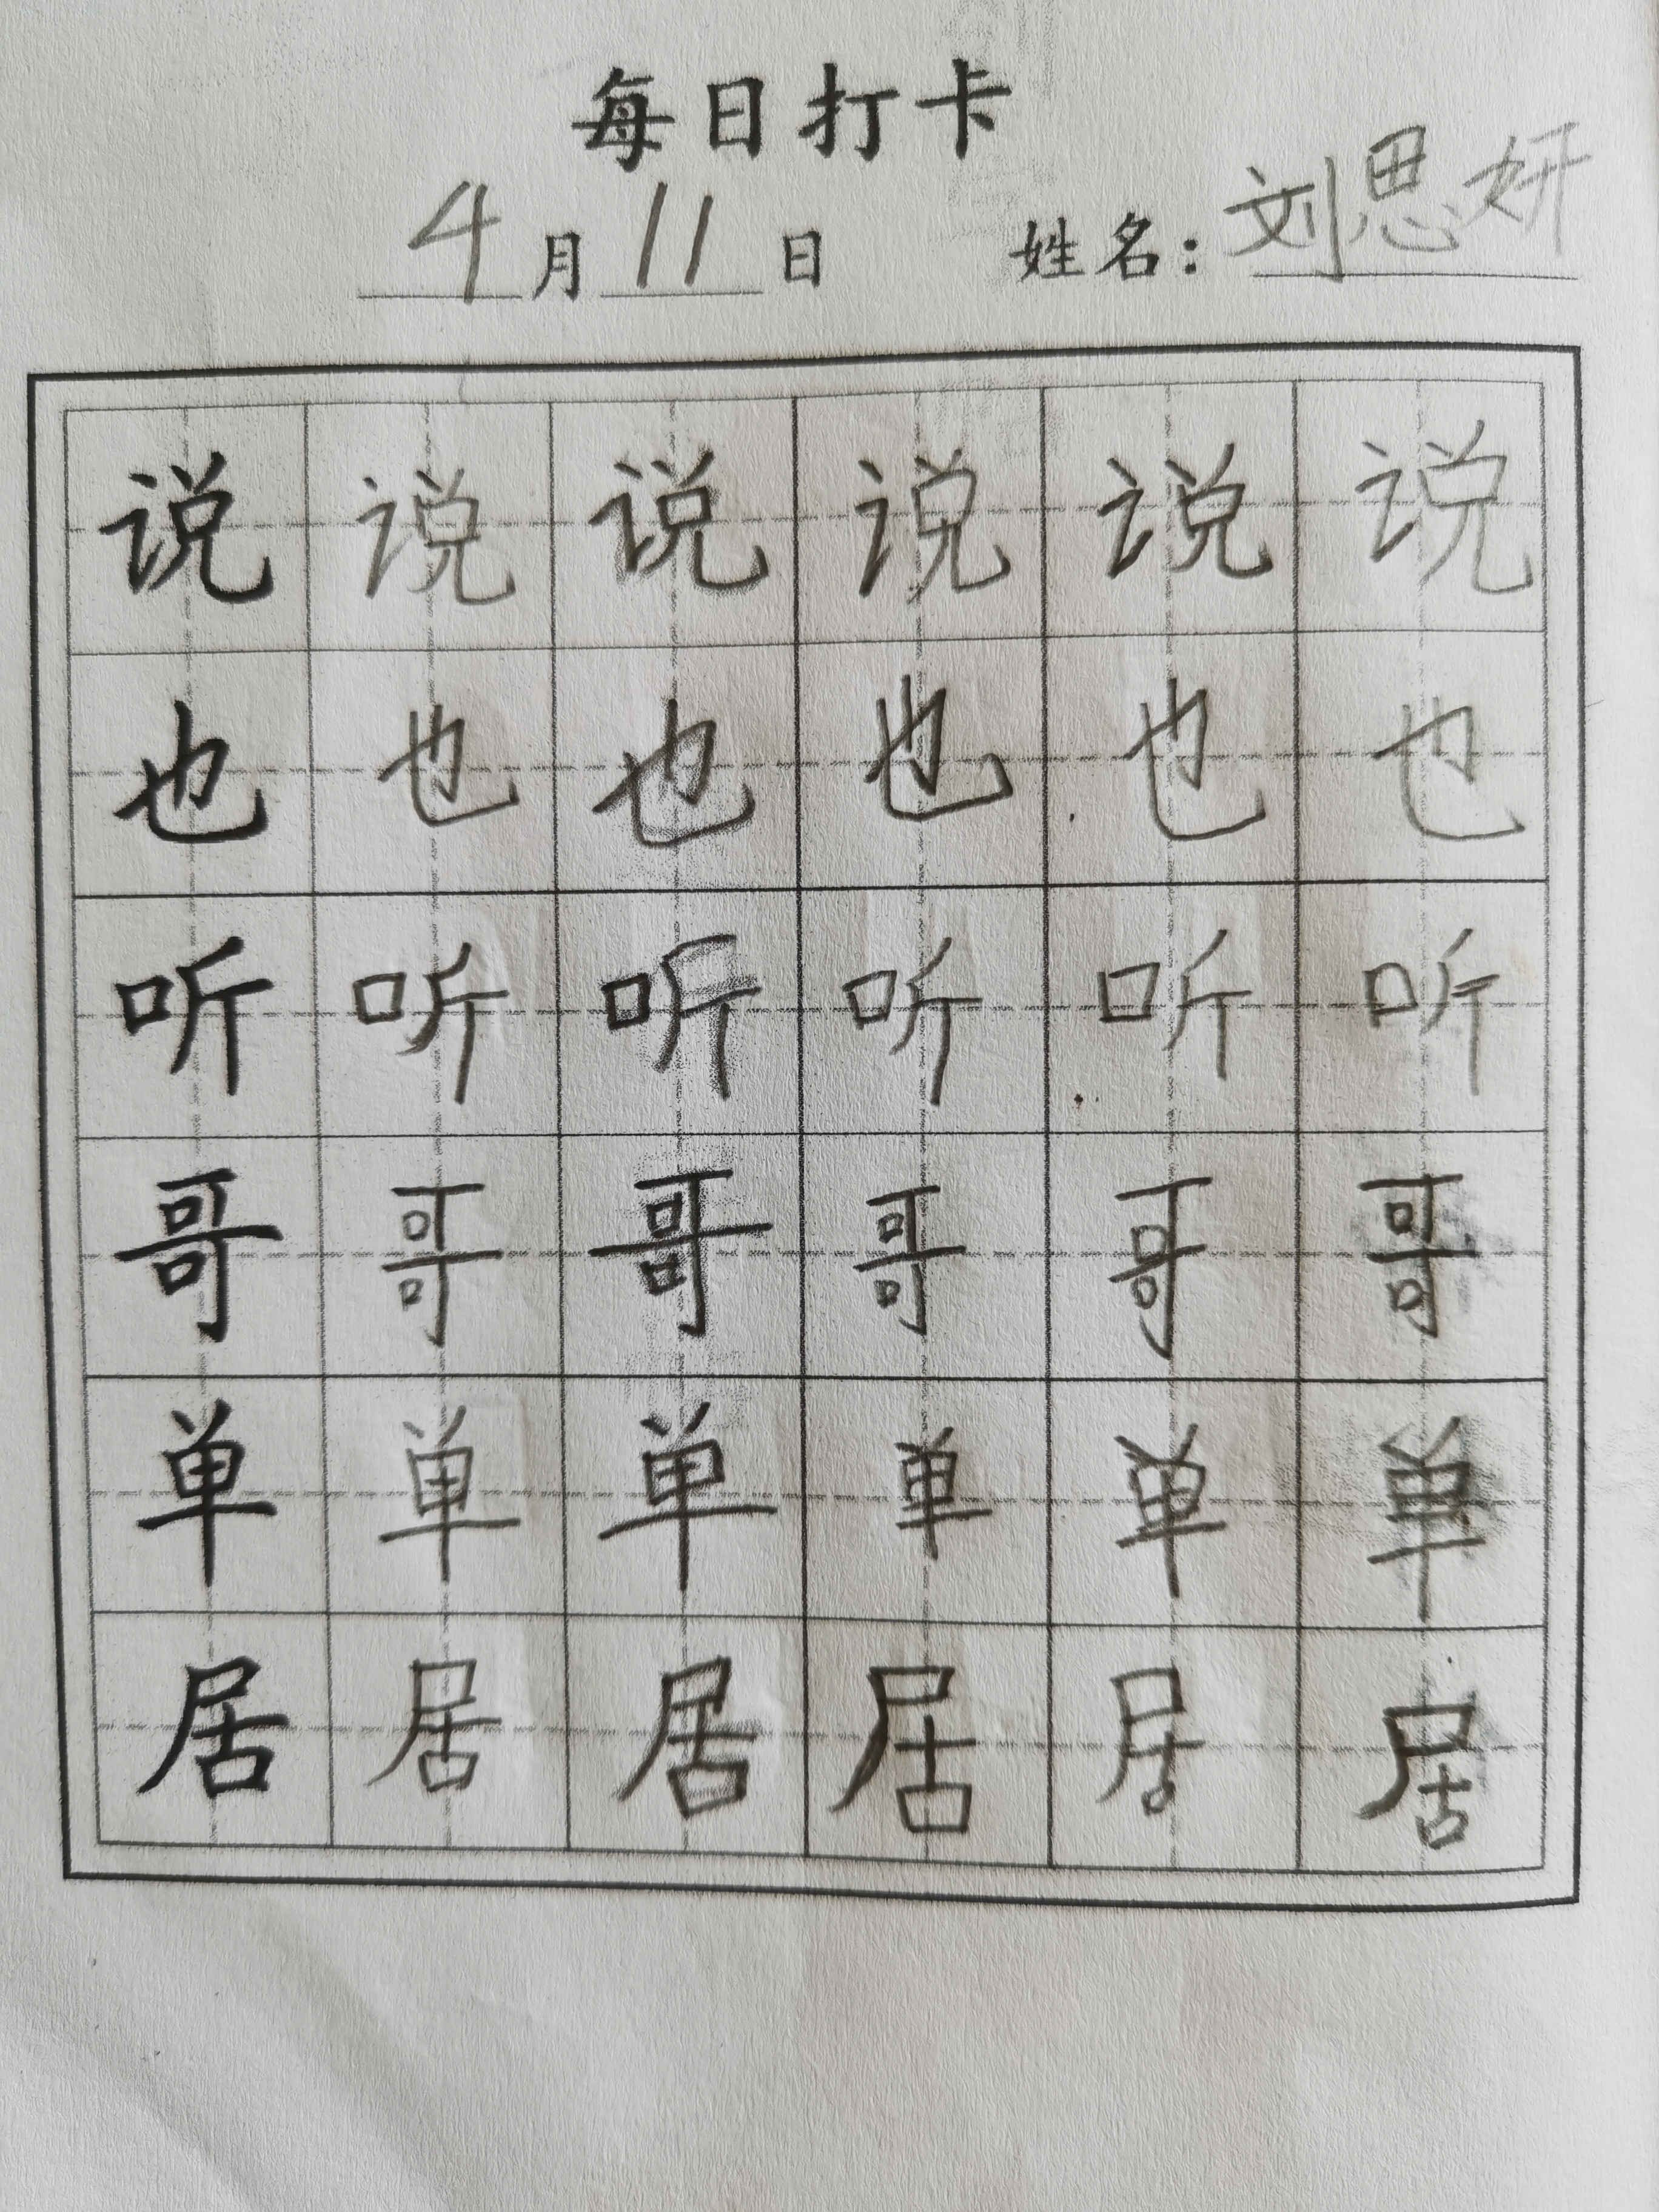 每日打卡
4月11日 姓名:刘思妍
说说说说说说
也也也也也也
听听听听听听
哥哥哥哥哥哥
单单单单单单
居居居居居居